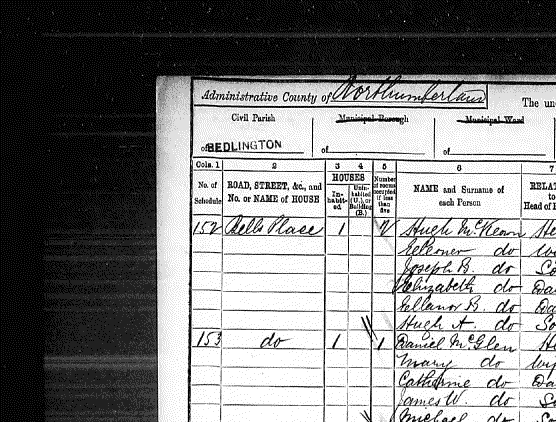 Administrative County of Northumberland
The un
Civil Parish
Municipal Borough
Municipal Ward
of BEDLINGTON
of
of
Cols. 1 2 3 4 5 6 7
No. of Schedule
ROAD, STREET, &c., and No. or NAME of HOUSE
HOUSES
In-habit-ed
Unin-habited (U.), or Building (B.)
Number of rooms occupied if less than five
NAME and Surname of each Person
RELAT
to
Head of
152 Bells Place 1 2 Hugh McKeown He
do
Joseph B. do So
Elizabeth do Da
Elleanor B. do Da
Hugh A. do So
153 do 1 1 Daniel McGlen He
Mary do Wi
Catherine do Da
James W. do So
Michael do So